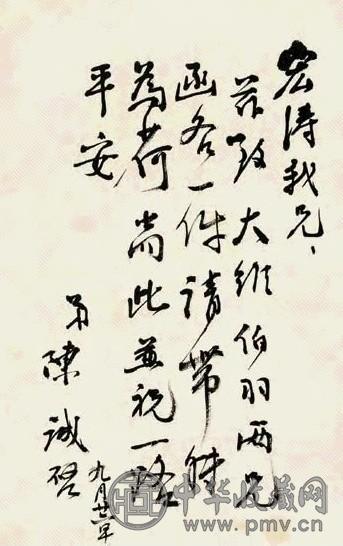 宏涛我兄、
茲致大維伯羽兩兄
函各一件請帶轉
為荷耑此並祝一路
平安
弟陳誠啓
九月廿 早
中华收藏网
www.pmv.cn